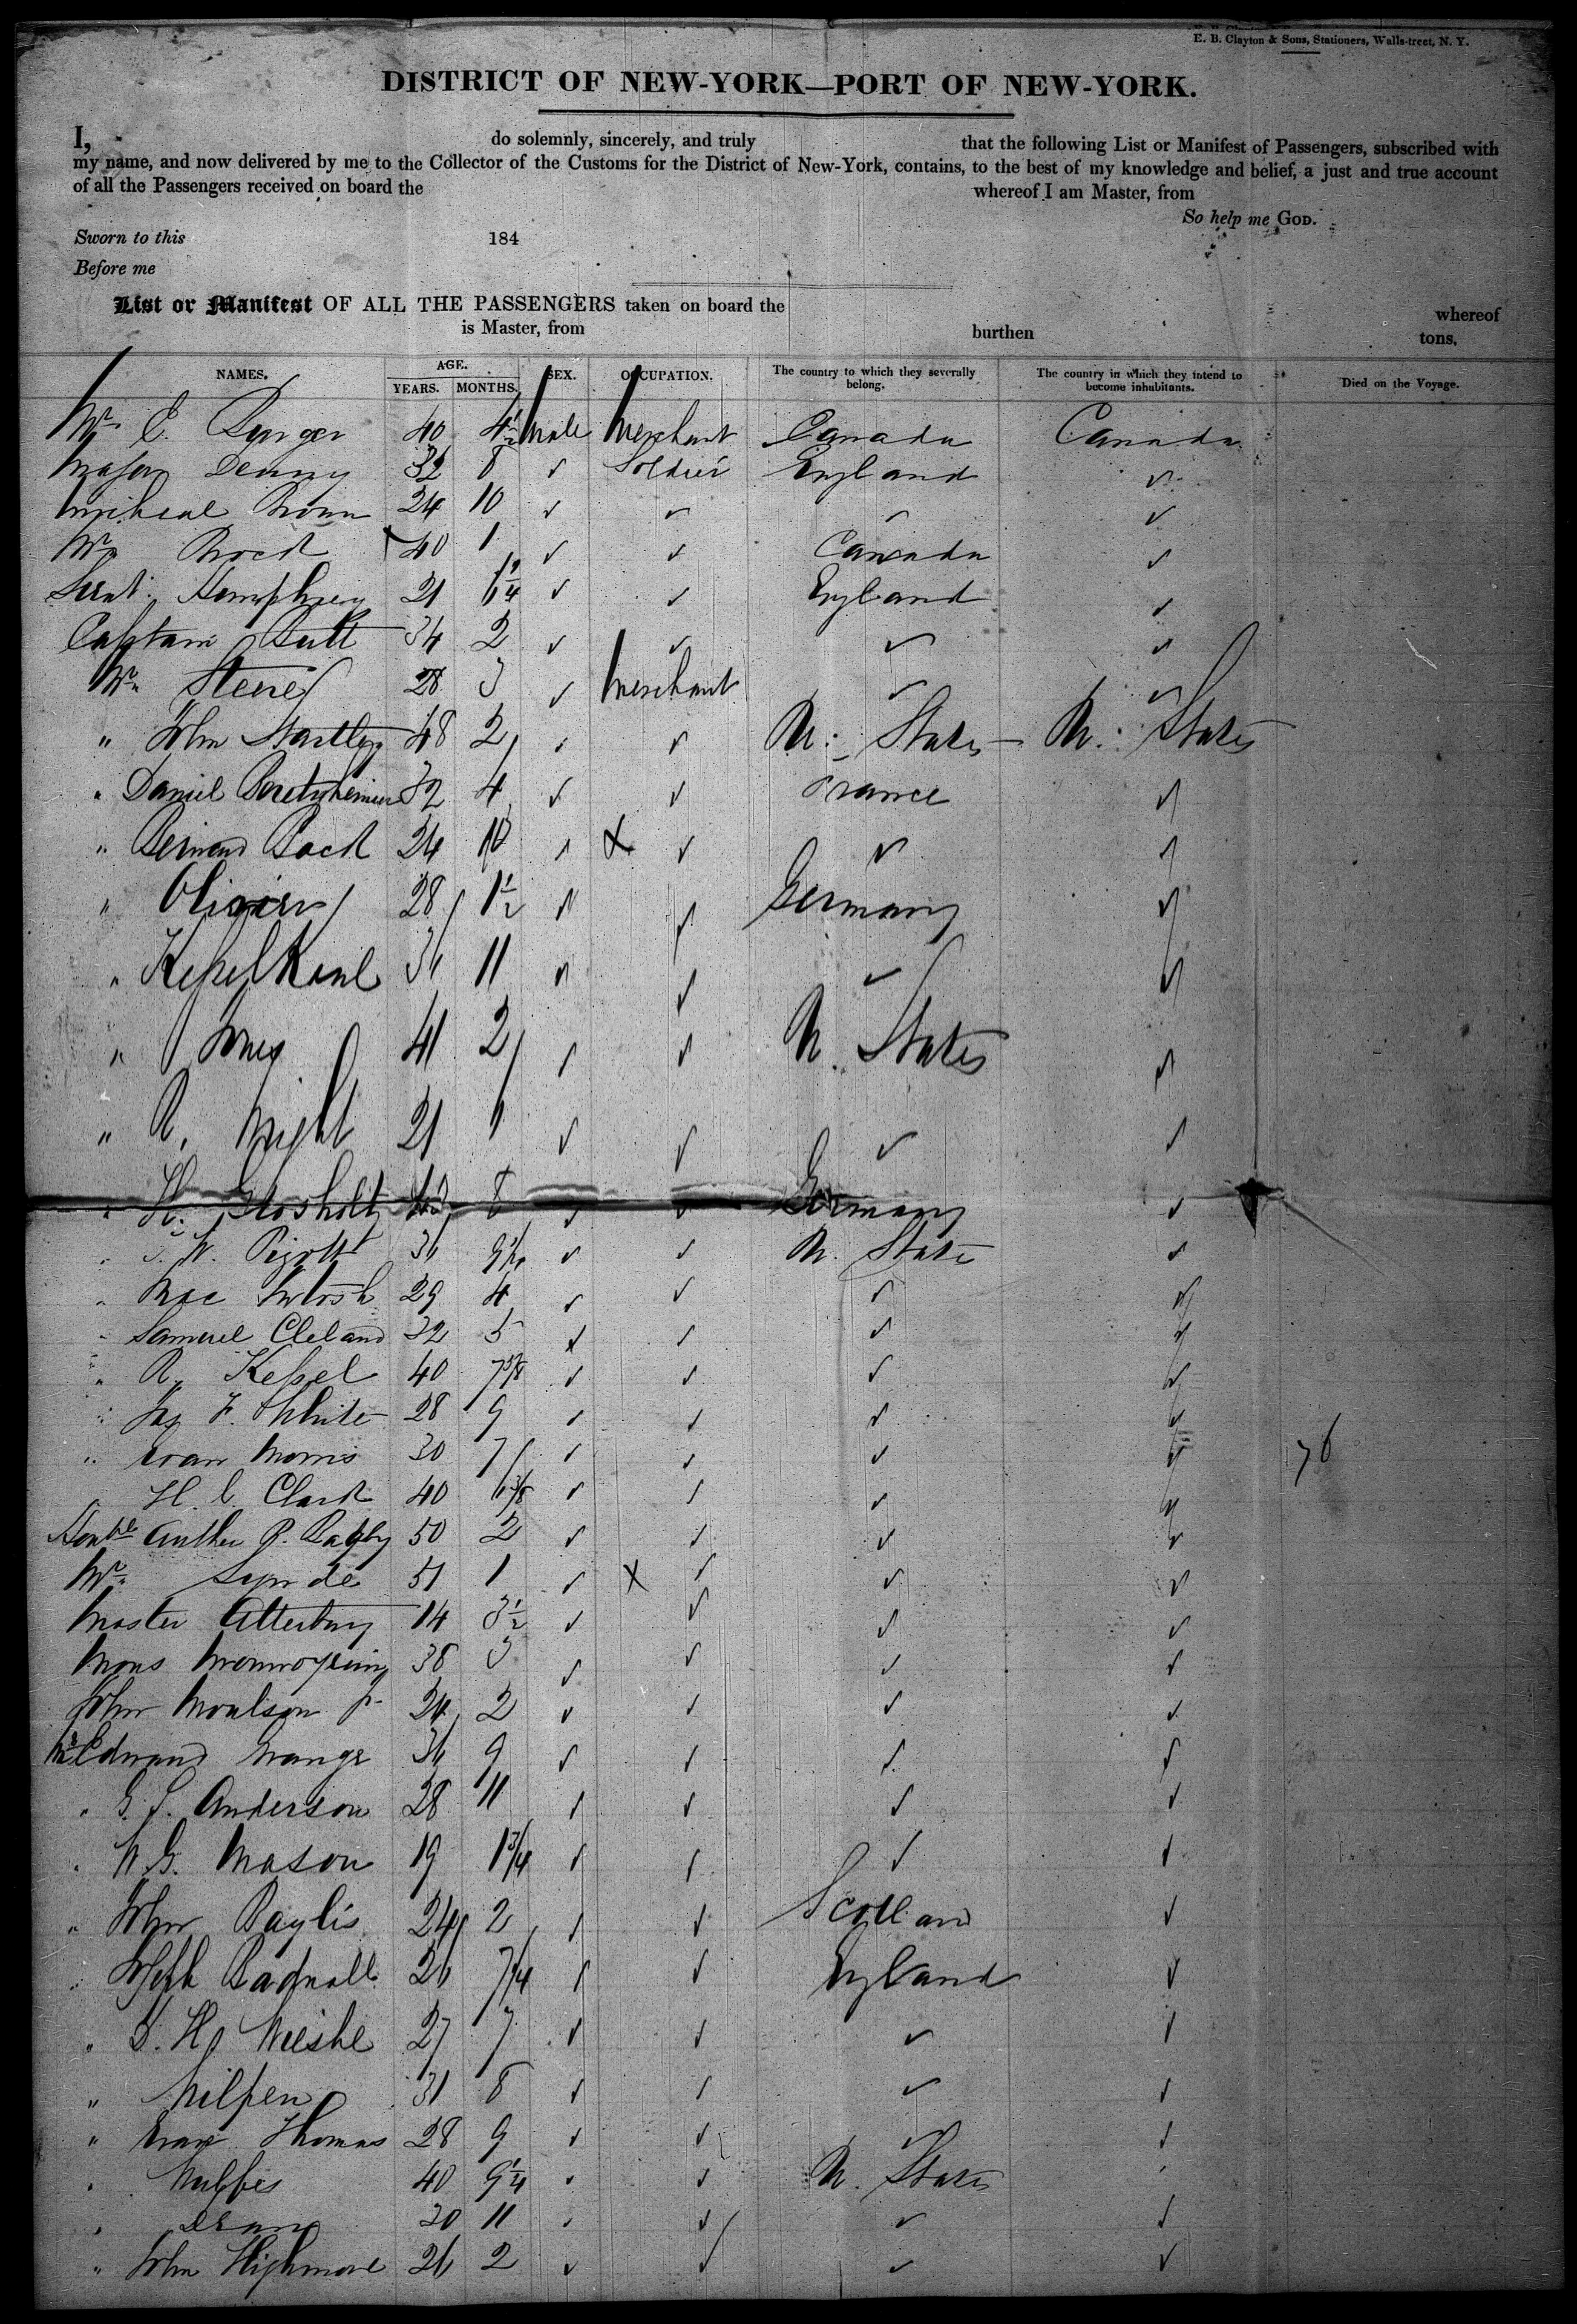 E. B. Clayton & Sons, Stationers, Walls-treet, N. Y.
DISTRICT OF NEW-YORK—PORT OF NEW-YORK.
I, do solemnly, sincerely, and truly that the following List or Manifest of Passengers, subscribed with
my name, and now delivered by me to the Collector of the Customs for the District of New-York, contains, to the best of my knowledge and belief, a just and true account
of all the Passengers received on board the whereof I am Master, from
So help me GOD.
Sworn to this 184
Before me
List or Manifest OF ALL THE PASSENGERS taken on board the whereof
is Master, from burthen tons,
NAMES. AGE. YEARS. MONTHS. SEX. OCCUPATION. The country to which they severally belong. The country in which they intend to become inhabitants. Died on the Voyage.
Mr. C. 40 4½ Male Merchant Canada Canada
Major Denny 32 8 ✓ Soldier England ✓
Micheal Brown 24 10 ✓ ✓ ✓ ✓
40 1 ✓ ✓ Canada ✓
Humphrey 21 ✓ ✓ England ✓
Captain Butt 34 2 ✓ ✓ ✓ ✓
Mr. 28 3 ✓ Merchant ✓ ✓
" John Hartley 48 2 ✓ ✓ U. States U. States
" Daniel 32 4 ✓ ✓ France ✓
" 24 10 ✓ X ✓ ✓ ✓
" Olivier 28 1½ ✓ ✓ Germany ✓
" 11 ✓ ✓ ✓ ✓
" Jones 41 2 ✓ ✓ U. States ✓
" R. Wright 21 ✓ ✓ ✓ ✓
" H. 8 ✓ ✓ Germany ✓
" W. Pigott ✓ ✓ U. States ✓
" Mac Intosh 29 4 ✓ ✓ ✓ ✓
" Samuel Cleland 32 5 ✓ ✓ ✓ ✓
" R. Keßel 40 7⅝ ✓ ✓ ✓ ✓
" Jas F. White 28 9 ✓ ✓ ✓ ✓
" Evan Morris 30 7 ✓ ✓ ✓ ✓ 76
" H. C. Clark 40 ✓ ✓ ✓ ✓
Honble Arthur P. Bagby 50 2 ✓ ✓ ✓ ✓
Mr. 51 1 ✓ X ✓ ✓ ✓
Master Atterbury 14 3½ ✓ ✓ ✓ ✓
Mons 38 3 ✓ ✓ ✓ ✓
John Moulson Jr 24 2 ✓ ✓ ✓ ✓
Mr Edward Grange 36 9 ✓ ✓ ✓ ✓
" G. S. Anderson 28 11 ✓ ✓ ✓ ✓
" W. G. Mason 19 1¾ ✓ ✓ ✓ ✓
" John Baylis 24 2 ✓ ✓ Scotland ✓
" Joseph Badnall 26 ✓ ✓ England ✓
" H. 27 7 ✓ ✓ ✓ ✓
" 31 8 ✓ ✓ ✓ ✓
" Evan Thomas 28 9 ✓ ✓ ✓ ✓
" 40 9¼ ✓ ✓ U. States ✓
" 30 11 ✓ ✓ ✓ ✓
" John Highmore 26 2 ✓ ✓ ✓ ✓